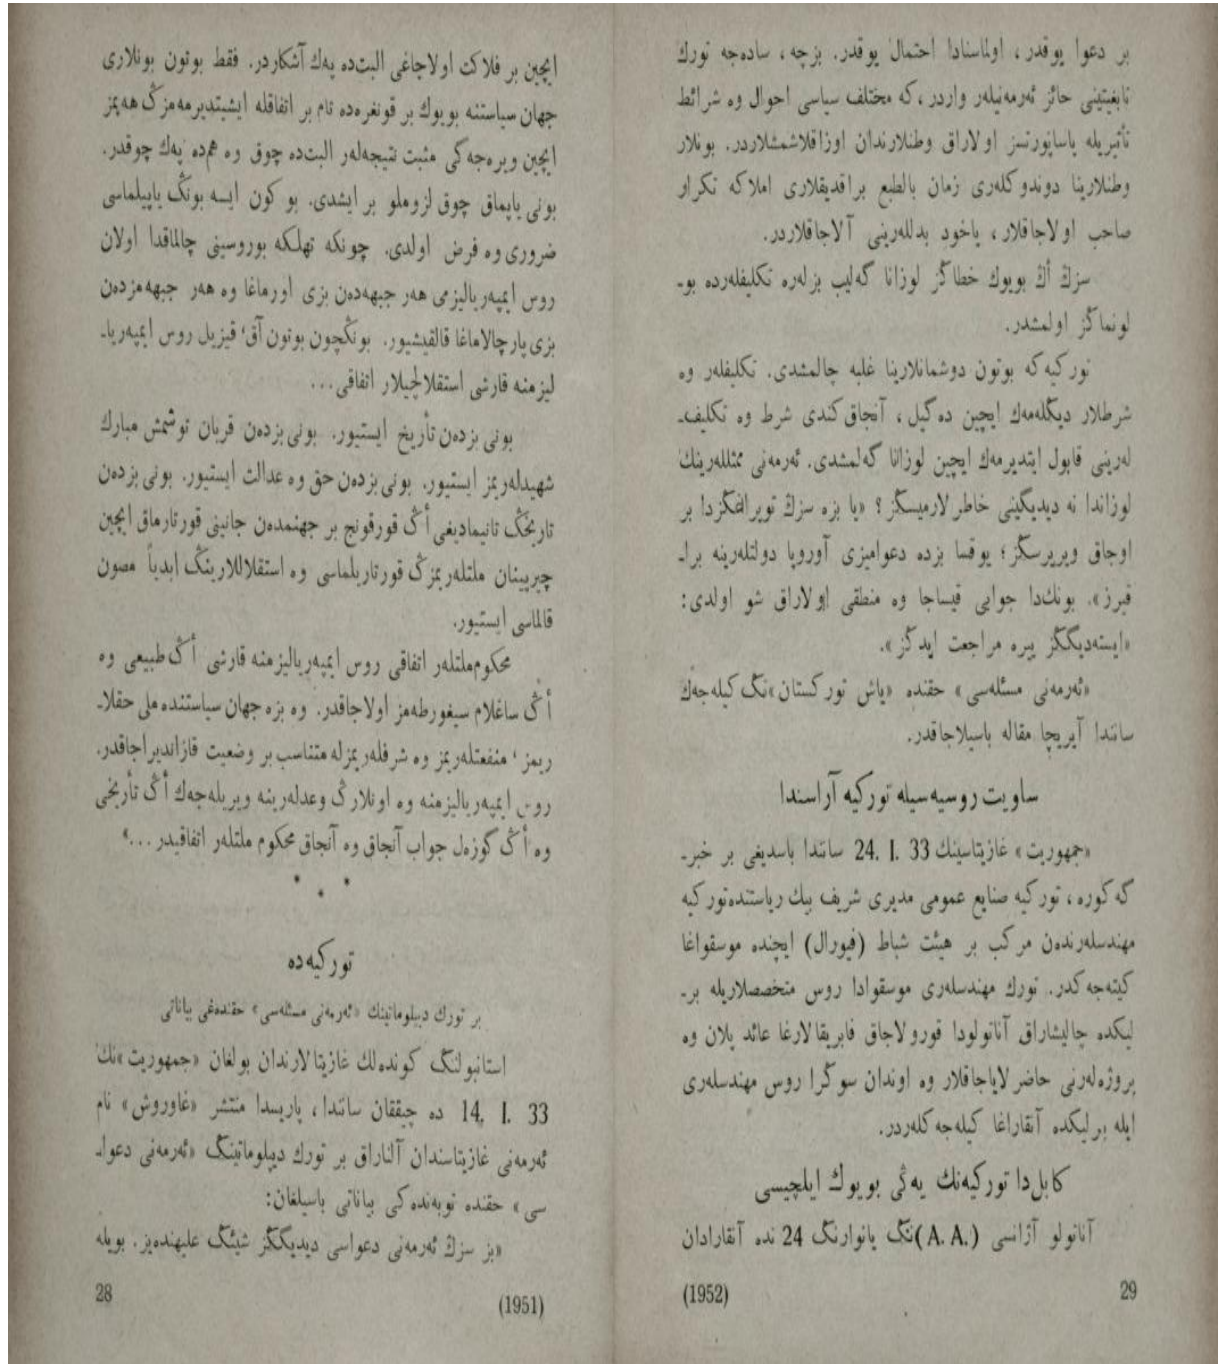 ایچین بر فلاکت اولاجاغی البته‌ده په‌ك آشکاردر. فقط بوتون بونلاری
جهان سیاستنه بویوك بر قونغره‌ده تام بر اتفاقله ایشیتدیرمه‌مزڭ هه‌پمز
ایچین ویره‌جه‌گی مثبت نتیجه‌له‌ر البته‌ده چوق وه هم‌ده په‌ك چوقدر.
بونی یاپماق چوق لزوملو بر ایشدی. بو کون ایسه بونڭ یاپیلماسی
ضروری وه فرض اولدی. چونکه تهلکه بوروسینی چالماقدا اولان
روس ایمپه‌ریالیزمی هه‌ر جبهه‌دن بزی اورماغا وه هه‌ر جبهه‌مزدن
بزی پارچالاماغا قالقیشیور. بونڭچون بوتون آق، قیزیل روس ایمپه‌ریا-
لیزمنه قارشی استقلالچیلار اتفاقی...
بونی بزده‌ن تأریخ ایستیور. بونی بزده‌ن قربان توشمش مبارك
شهیدله‌ریمز ایستیور. بونی بزده‌ن حق وه عدالت ایستیور. بونی بزده‌ن
تاریخڭ تانیمادیغی أڭ قورقونج بر جهنمده‌ن جانینی قورتارماق ایچین
چیرپینان ملتله‌ریمزڭ قورتاریلماسی وه استقلاللارینڭ ابدیاً مصون
قالماسی ایستیور.
محکوم‌ملتله‌ر اتفاقی روس ایمپه‌ریالیزمنه قارشی أڭ طبیعی وه
أڭ ساغلام سیغورطه‌مز اولاجاقدر. وه بزه جهان سیاستنده ملی حقلا-
ریمز، منفعتله‌ریمز وه شرفله‌ریمزله متناسب بر وضعیت قازاندیراجاقدر.
روس ایمپه‌ریالیزمنه وه اونلارڭ وعدله‌رینه ویریله‌جه‌ك أڭ تأریخی
وه أڭ گوزه‌ل جواب آنجاق وه آنجاق محکوم ملتله‌ر اتفاقیدر...»
* * *
تورکیه‌ده
بر تورك دیپلوماتینك «ئه‌رمه‌نی مسئله‌سی» حقنده‌غی بیاناتی
استانبولنڭ کونده‌لك غازیتالارندان بولغان «جمهوریت»نڭ
14. I. 33 ده چیققان سانندا، پاریسدا منتشر «غاوروش» نام
ئه‌رمه‌نی غازیتاسندان آلناراق بر تورك دیپلوماتینڭ «ئه‌رمه‌نی دعوا-
سی» حقنده توبه‌نده‌کی بیاناتی باسیلغان:
«بز سزڭ ئه‌رمه‌نی دعواسی دیدیگڭز شیئڭ علیهنده‌یز. بویله
28
(1951)
بر دعوا یوقدر، اولماسنادا احتمال یوقدر. بزچه، ساده‌جه تورك
تابغیتینی حائز ئه‌رمه‌نیله‌ر واردر، که مختلف سیاسی احوال وه شرائط
تأثیریله پاساپورتسز اولاراق وطنلارندان اوزاقلاشمشلاردر. بونلار
وطنلارینا دوندوکله‌ری زمان بالطبع براقدیقلاری املاکه تکرار
صاحب اولاجاقلار، یاخود بدلله‌رینی آلاجاقلاردر.
سزڭ أڭ بویوك خطاڭز لوزانا گه‌لیب بزله‌ره تکلیفله‌رده بو-
لونماڭز اولمشدر.
تورکیه که بوتون دوشمانلارینا غلبه چالمشدی. تکلیفله‌ر وه
شرطلار دیڭله‌مه‌ك ایچین ده‌گیل، آنجاق کندی شرط وه تکلیف-
له‌رینی قابول ایتدیرمه‌ك ایچین لوزانا گه‌لمشدی. ئه‌رمه‌نی ممثلله‌رینڭ
لوزاندا نه دیدیگینی خاطرلارمیسڭز؟ «یا بزه سزڭ توپراغڭزدا بر
اوجاق ویریرسڭز؛ یوقسا بزده دعوامیزی آوروپا دولتله‌رینه برا-
قیرز». بونڭ‌دا جوابی قیساجا وه منطقی اولاراق شو اولدی:
«ایسته‌دیگڭز ییره مراجعت ایدڭز».
«ئه‌رمه‌نی مسئله‌سی» حقنده «یاش تورکستان»نڭ کیله‌جه‌ك
سانندا آیریچا مقاله باسیلاجاقدر.
ساویت روسیه‌سیله تورکیه آراسندا
«جمهوریت» غازیتاسینڭ 24. I. 33 سانندا باسدیغی بر خبر-
گه کوره، تورکیه صنایع عمومی مدیری شریف بیك ریاستنده‌تورکیه
مهندسله‌رنده‌ن مرکب بر هیئت شباط (فیورال) ایچنده موسقواغا
کیته‌جه‌کدر. تورك مهندسله‌ری موسقوادا روس متخصصلاریله بر-
لیکده چالیشاراق آناتولودا قورولاجاق فابریقالارغا عائد پلان وه
پروژه‌له‌رنی حاضرلایاجاقلار وه اوندان سوڭرا روس مهندسله‌ری
ایله برلیکده آنقاراغا کیله‌جه‌کله‌ردر.
کابل‌دا تورکیه‌نڭ یه‌ڭی بویوك ایلچیسی
آناتولو آژانسی (A. A.)نڭ یانوارنڭ 24 نده آنقارادان
(1952)
29